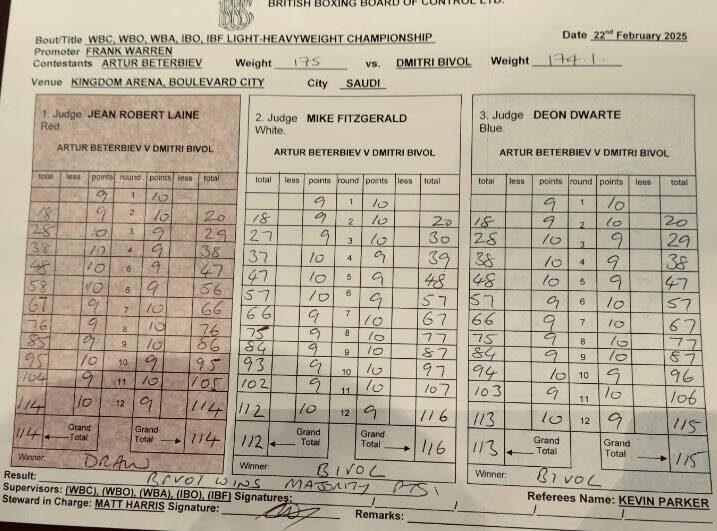 BRITISH BOXING BOARD OF CONTROL LTD.
Bout/Title WBC, WBO, WBA, IBO, IBF LIGHT-HEAVYWEIGHT CHAMPIONSHIP Date 22nd February 2025
Promoter FRANK WARREN
Contestants ARTUR BETERBIEV Weight 175 vs. DMITRI BIVOL Weight 174.1.
Venue KINGDOM ARENA, BOULEVARD CITY City SAUDI
1. Judge JEAN ROBERT LAINE
Red.
ARTUR BETERBIEV V DMITRI BIVOL
total less points round points less total
9 1 10
18 9 2 10 20
28 10 3 9 29
38 10 4 9 38
48 10 5 9 47
58 10 6 9 56
67 9 7 10 66
76 9 8 10 76
85 9 9 10 86
95 10 10 9 95
104 9 11 10 105
114 10 12 9 114
114 Grand Total Grand Total 114
Winner: DRAW
2. Judge MIKE FITZGERALD
White.
ARTUR BETERBIEV V DMITRI BIVOL
total less points round points less total
9 1 10
18 9 2 10 20
27 9 3 10 30
37 10 4 9 39
47 10 5 9 48
57 10 6 9 57
66 9 7 10 67
75 9 8 10 77
84 9 9 10 87
93 9 10 10 97
102 9 11 10 107
112 10 12 9 116
112 Grand Total Grand Total 116
Winner: BIVOL
3. Judge DEON DWARTE
Blue.
ARTUR BETERBIEV V DMITRI BIVOL
total less points round points less total
9 1 10
18 9 2 10 20
28 10 3 9 29
38 10 4 9 38
48 10 5 9 47
57 9 6 10 57
66 9 7 10 67
75 9 8 10 77
84 9 9 10 87
94 10 10 9 96
103 9 11 10 106
113 10 12 9 115
113 Grand Total Grand Total 115
Winner: BIVOL
Result: BIVOL WINS MAJORITY PTS.
Supervisors: (WBC), (WBO), (WBA), (IBO), (IBF) Signatures: / / / / Referees Name: KEVIN PARKER
Steward in Charge: MATT HARRIS Signature: Remarks: